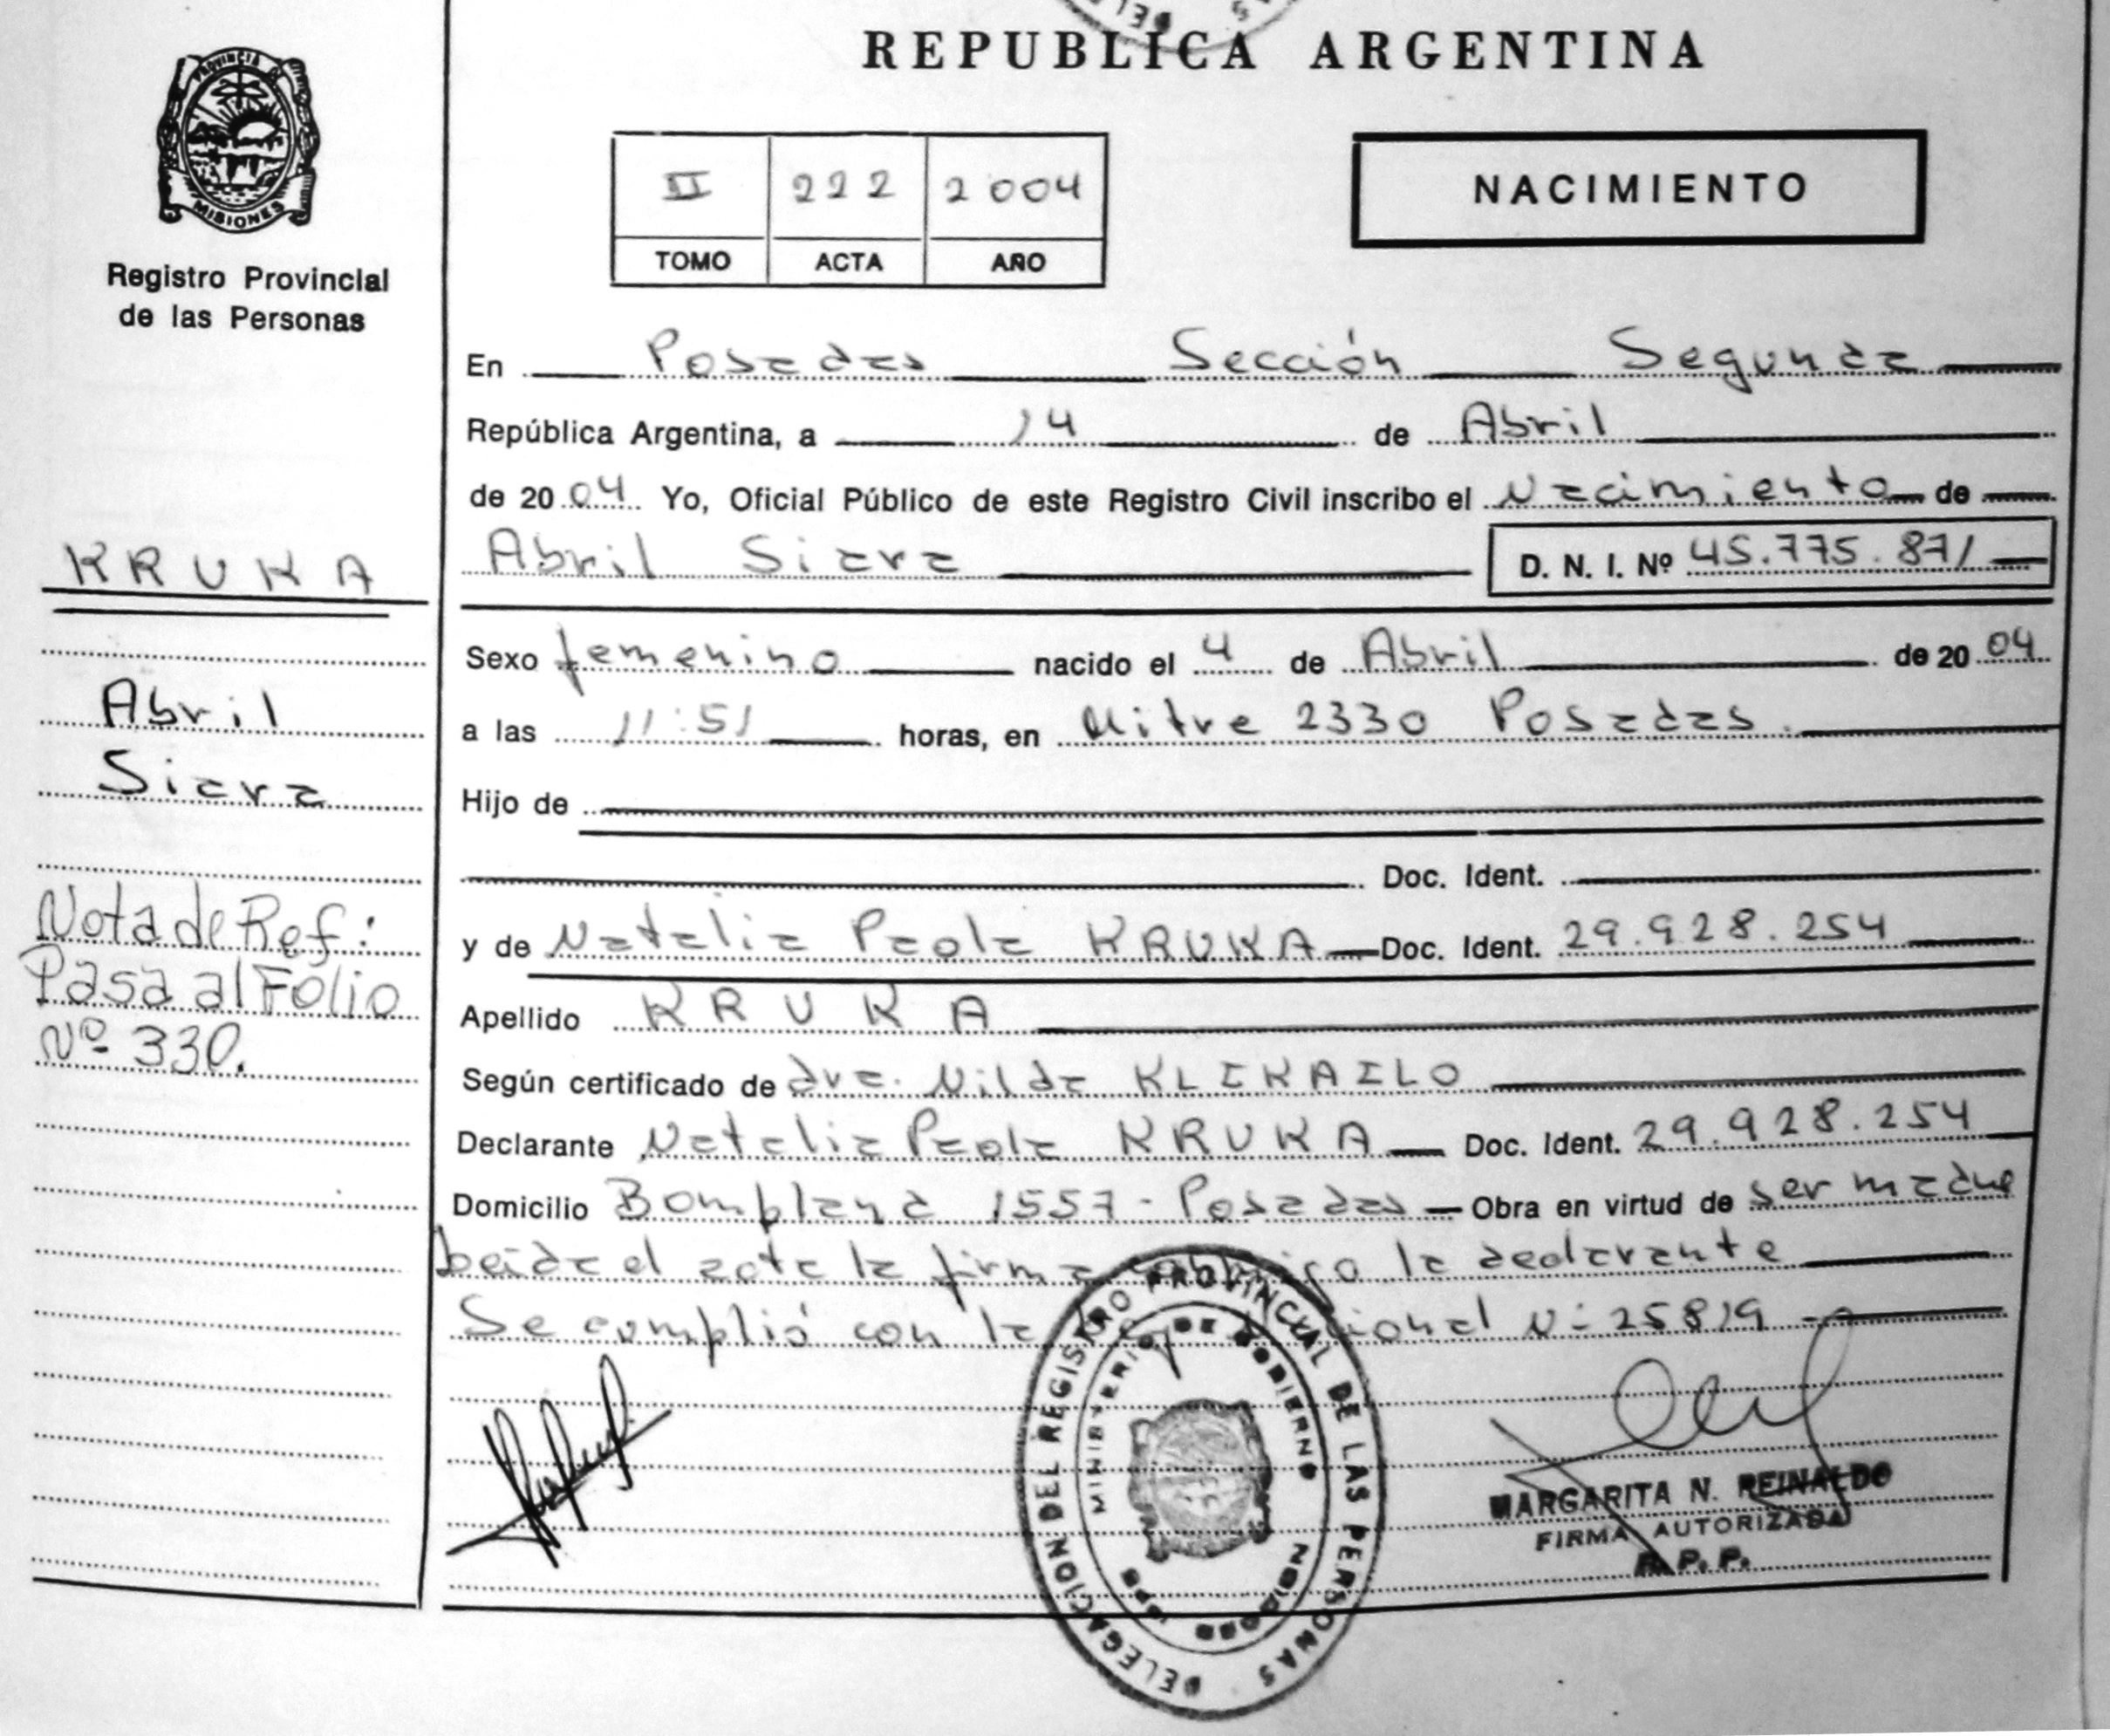 REPUBLICA ARGENTINA
PROVINCIA DE
MISIONES
Registro Provincial
de las Personas
II 222 2004
TOMO ACTA AÑO
NACIMIENTO
En Posadas Sección Segunda
República Argentina, a 14 de Abril
de 2004 Yo, Oficial Público de este Registro Civil inscribo el Nacimiento de
KRUKA
Abril Siara D. N. I. Nº 45.775.871
Sexo femenino nacido el 4 de Abril de 2004
Abril
a las 11:51 horas, en Mitre 2330 Posadas.
Siara
Hijo de
Doc. Ident.
Nota de Ref:
y de Natalia Paola KRUKA Doc. Ident. 29.928.254
Pasa al Folio
Apellido KRUKA
Nº 330.
Según certificado de dra. Nilda KLEKAILO
Declarante Natalia Paola KRUKA Doc. Ident. 29.928.254
Domicilio Bompland 1557 - Posadas Obra en virtud de ser madre
Leida el acta la firma conmigo la declarante
Se cumplió con la Ley Nacional N: 25819
DELEGACION DEL REGISTRO PROVINCIAL DE LAS PERSONAS
MINISTERIO DE GOBIERNO
MARGARITA N. REINALDO
FIRMA AUTORIZADA
R. P. P.